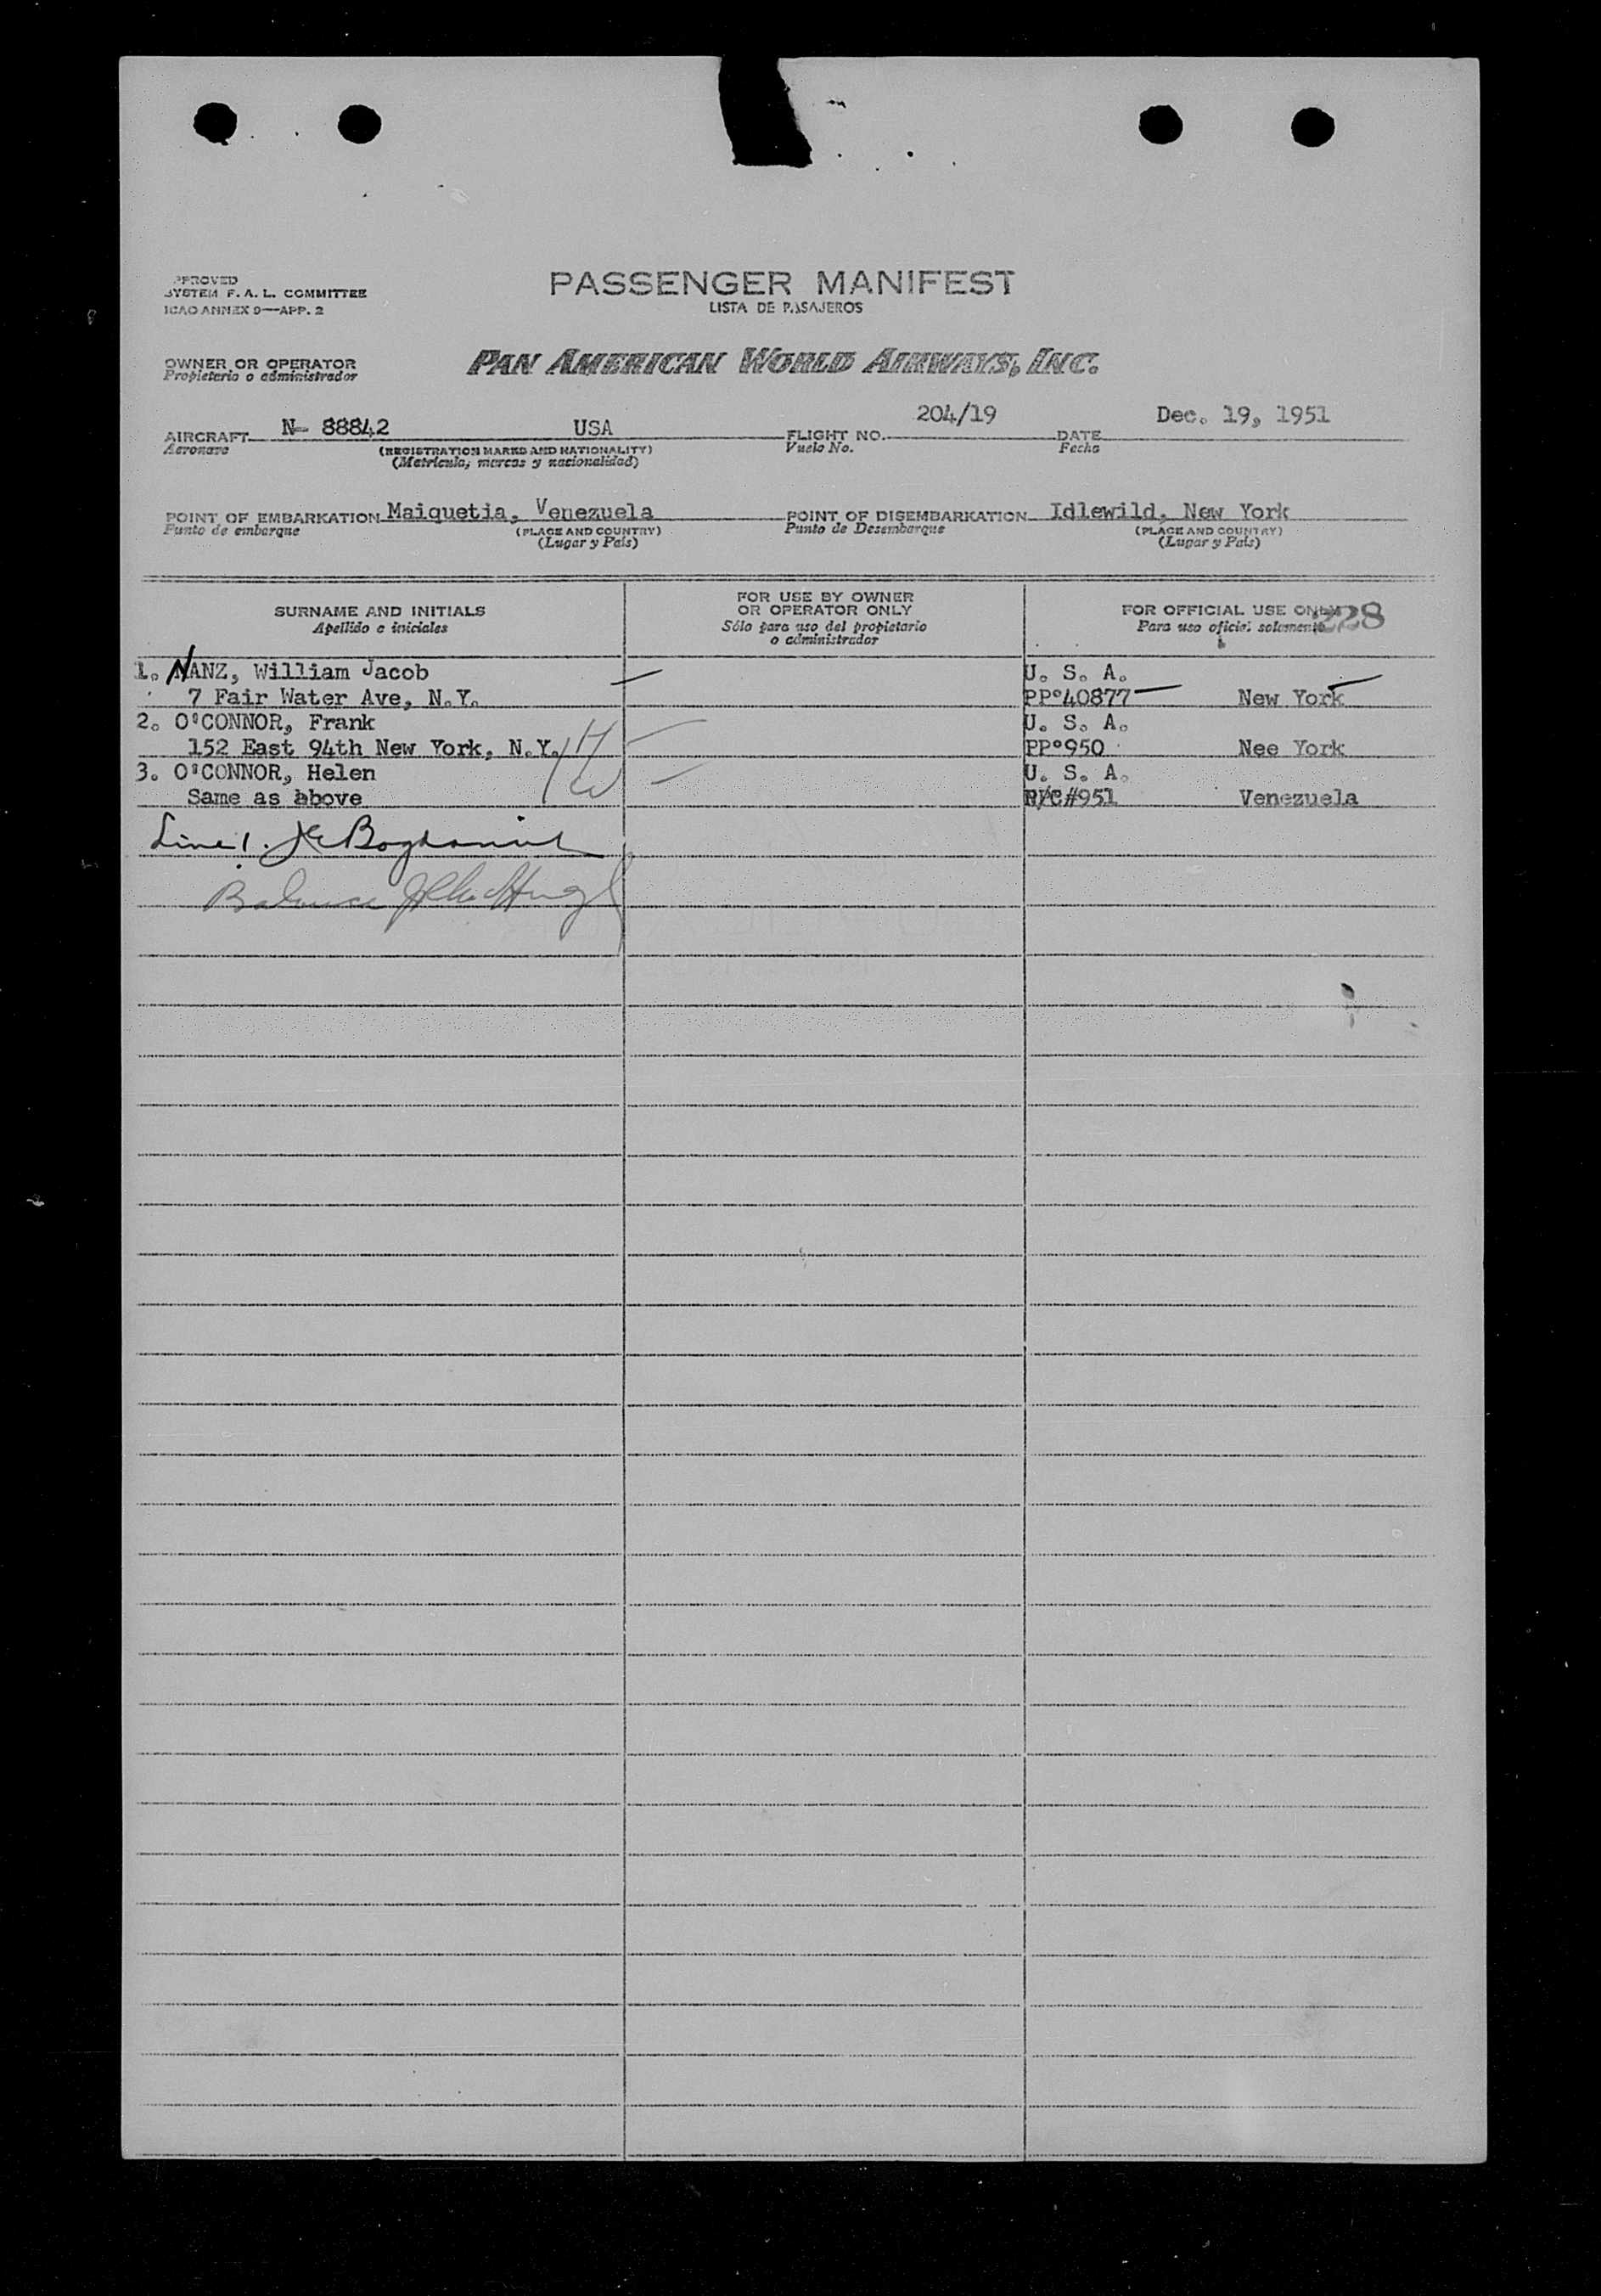 PASSENGER MANIFEST
LISTA DE PASAJEROS
PPROVED
SYSTEM F. A. L. COMMITTEE
ICAO ANNEX 9—APP. 2
OWNER OR OPERATOR
Propietario o administrador
PAN AMERICAN WORLD AIRWAYS, INC.
AIRCRAFT N- 88842 USA FLIGHT NO. 204/19 DATE Dec. 19, 1951
Aeronave (REGISTRATION MARKS AND NATIONALITY) Vuelo No. Fecha
(Matricula, marcas y nacionalidad)
POINT OF EMBARKATION Maiquetia, Venezuela POINT OF DISEMBARKATION Idlewild, New York
Punto de embarque (PLACE AND COUNTRY) Punto de Desembarque (PLACE AND COUNTRY)
(Lugar y País) (Lugar y País)
SURNAME AND INITIALS
Apellido e iniciales
FOR USE BY OWNER
OR OPERATOR ONLY
Sólo para uso del propietario
o administrador
FOR OFFICIAL USE ONLY 228
Para uso oficial solamente
1. NANZ, William Jacob U. S. A.
7 Fair Water Ave, N.Y. PP°40877 New York
2. O'CONNOR, Frank U. S. A.
152 East 94th New York, N.Y. PP°950 Nee York
3. O'CONNOR, Helen U. S. A.
Same as above R/C#951 Venezuela
Line 1.
Balance